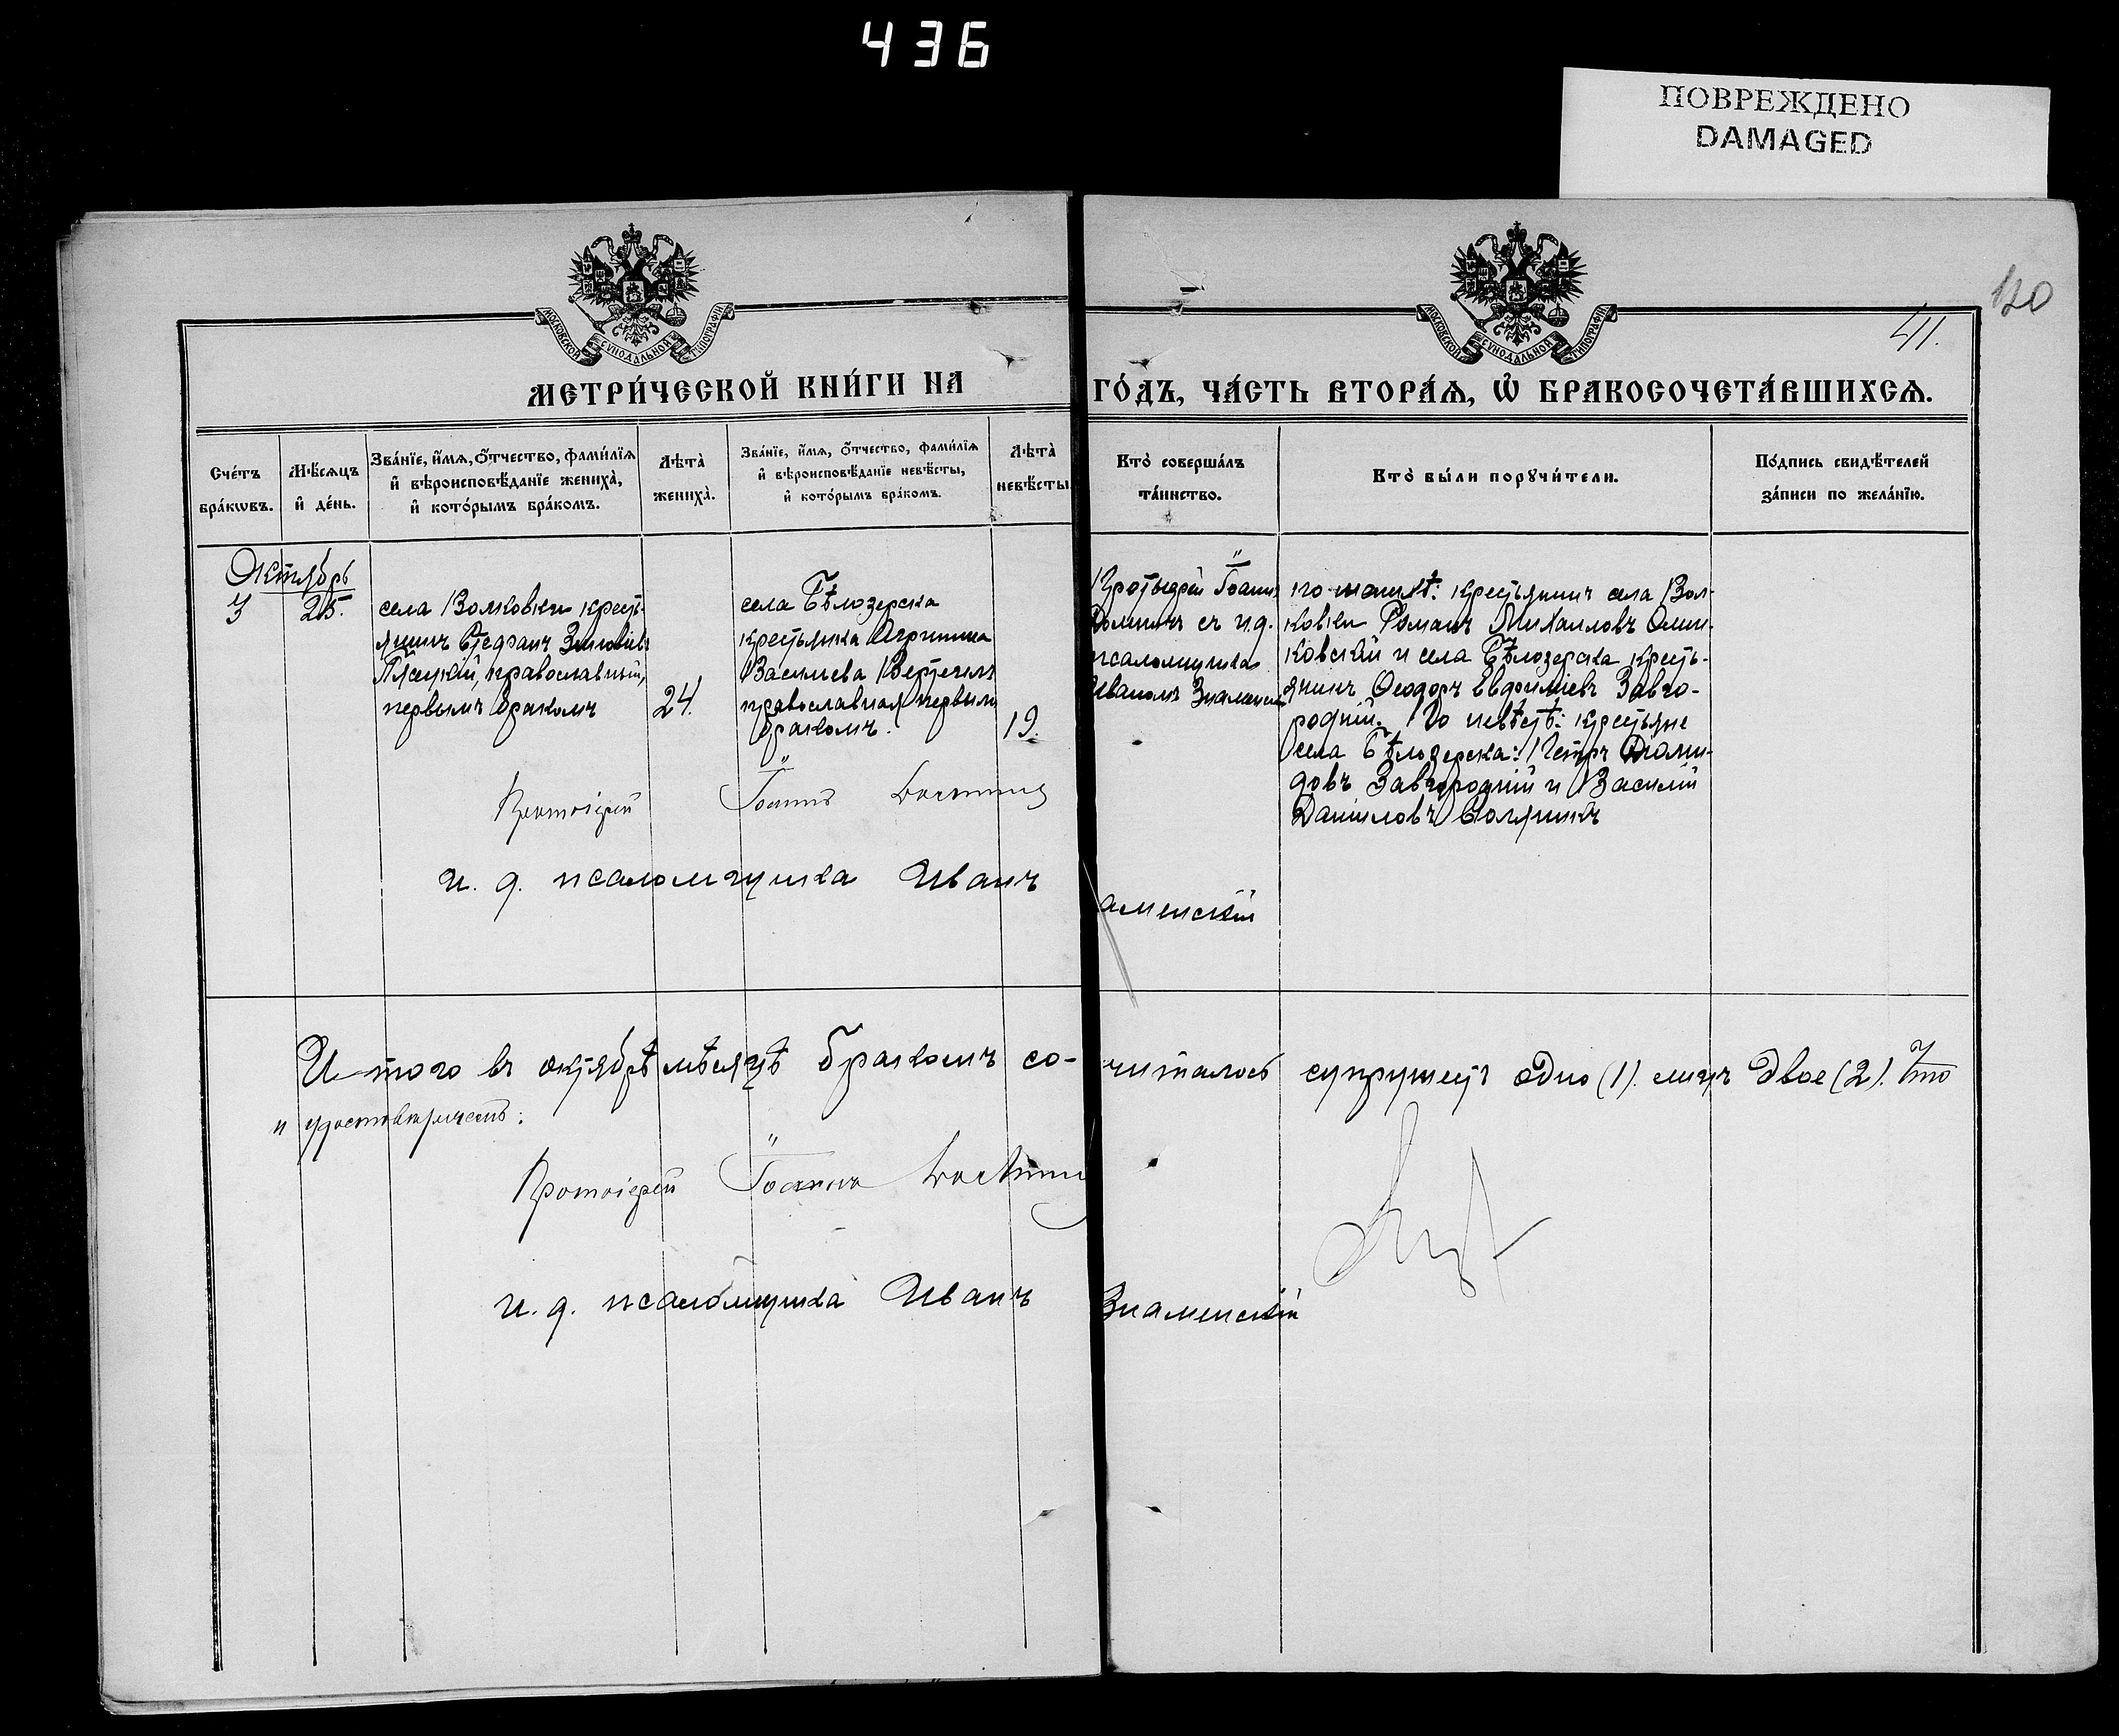 436
ПОВРЕЖДЕНО
DAMAGED
120
41.
МОСКОВСКОЙ СѴНОДАЛЬНОЙ ТИПОГРАФІИ
МОСКОВСКОЙ СѴНОДАЛЬНОЙ ТИПОГРАФІИ
МЕТРИ́ЧЕСКОЙ КНИ́ГИ НА ГО́ДЪ, ЧА́СТЬ ВТОРА́Ѧ, Ѡ҆ БРАКОСОЧЕТА́ВШИХСѦ.
Сче́тъ бра́кѡвъ.
Мѣ́сѧцъ и҆ де́нь.
Зва́нїе, и҆́мѧ, о҆́тчество, фами́лїѧ и҆ вѣроисповѣ́данїе жениха̀, и҆ кото́рымъ бра́комъ.
Лѣта̀ жениха̀.
Зва́нїе, и҆́мѧ, о҆́тчество, фами́лїѧ и҆ вѣроисповѣ́данїе невѣ́сты, и҆ кото́рымъ бра́комъ.
Лѣта̀ невѣ́сты
Кто̀ соверша́лъ та́инство.
Кто̀ бы́ли порꙋчи́тели.
По́дпись свидѣ́телей за́писи по жела́нїю.
Октябрь
3
25.
села Волковки кресть-
янинъ Стефанъ Зиновіевъ
Пясецкій, православный,
первымъ бракомъ
24.
села Бѣлозерска
крестьянка Агрипина
Васильева
православная первымъ
бракомъ.
19.
Протіерей Іоаннъ
съ и.д.
псаломщика
Иваномъ Знаменск
по женихѣ: крестьянинъ села Вол-
ковки Романъ Михаиловъ
и села Бѣлозерска кресть-
янинъ Ѳеодоръ Евфиміевъ Завго-
родній. По невѣстѣ: крестьяне
села Бѣлозерска: Петръ Діоми-
довъ Завгородній и Василій
Даніиловъ
Протоіерей Іоаннъ
и. д. псаломщика Иванъ
аменскій
Итого въ октябрѣ мѣсяцѣ бракомъ со-
читалось супружествъ одно (1). лицъ двое (2). Что
и удостовѣряемъ:
Протоіерей Іоаннъ
и. д. псаломщика Иванъ Знаменскій